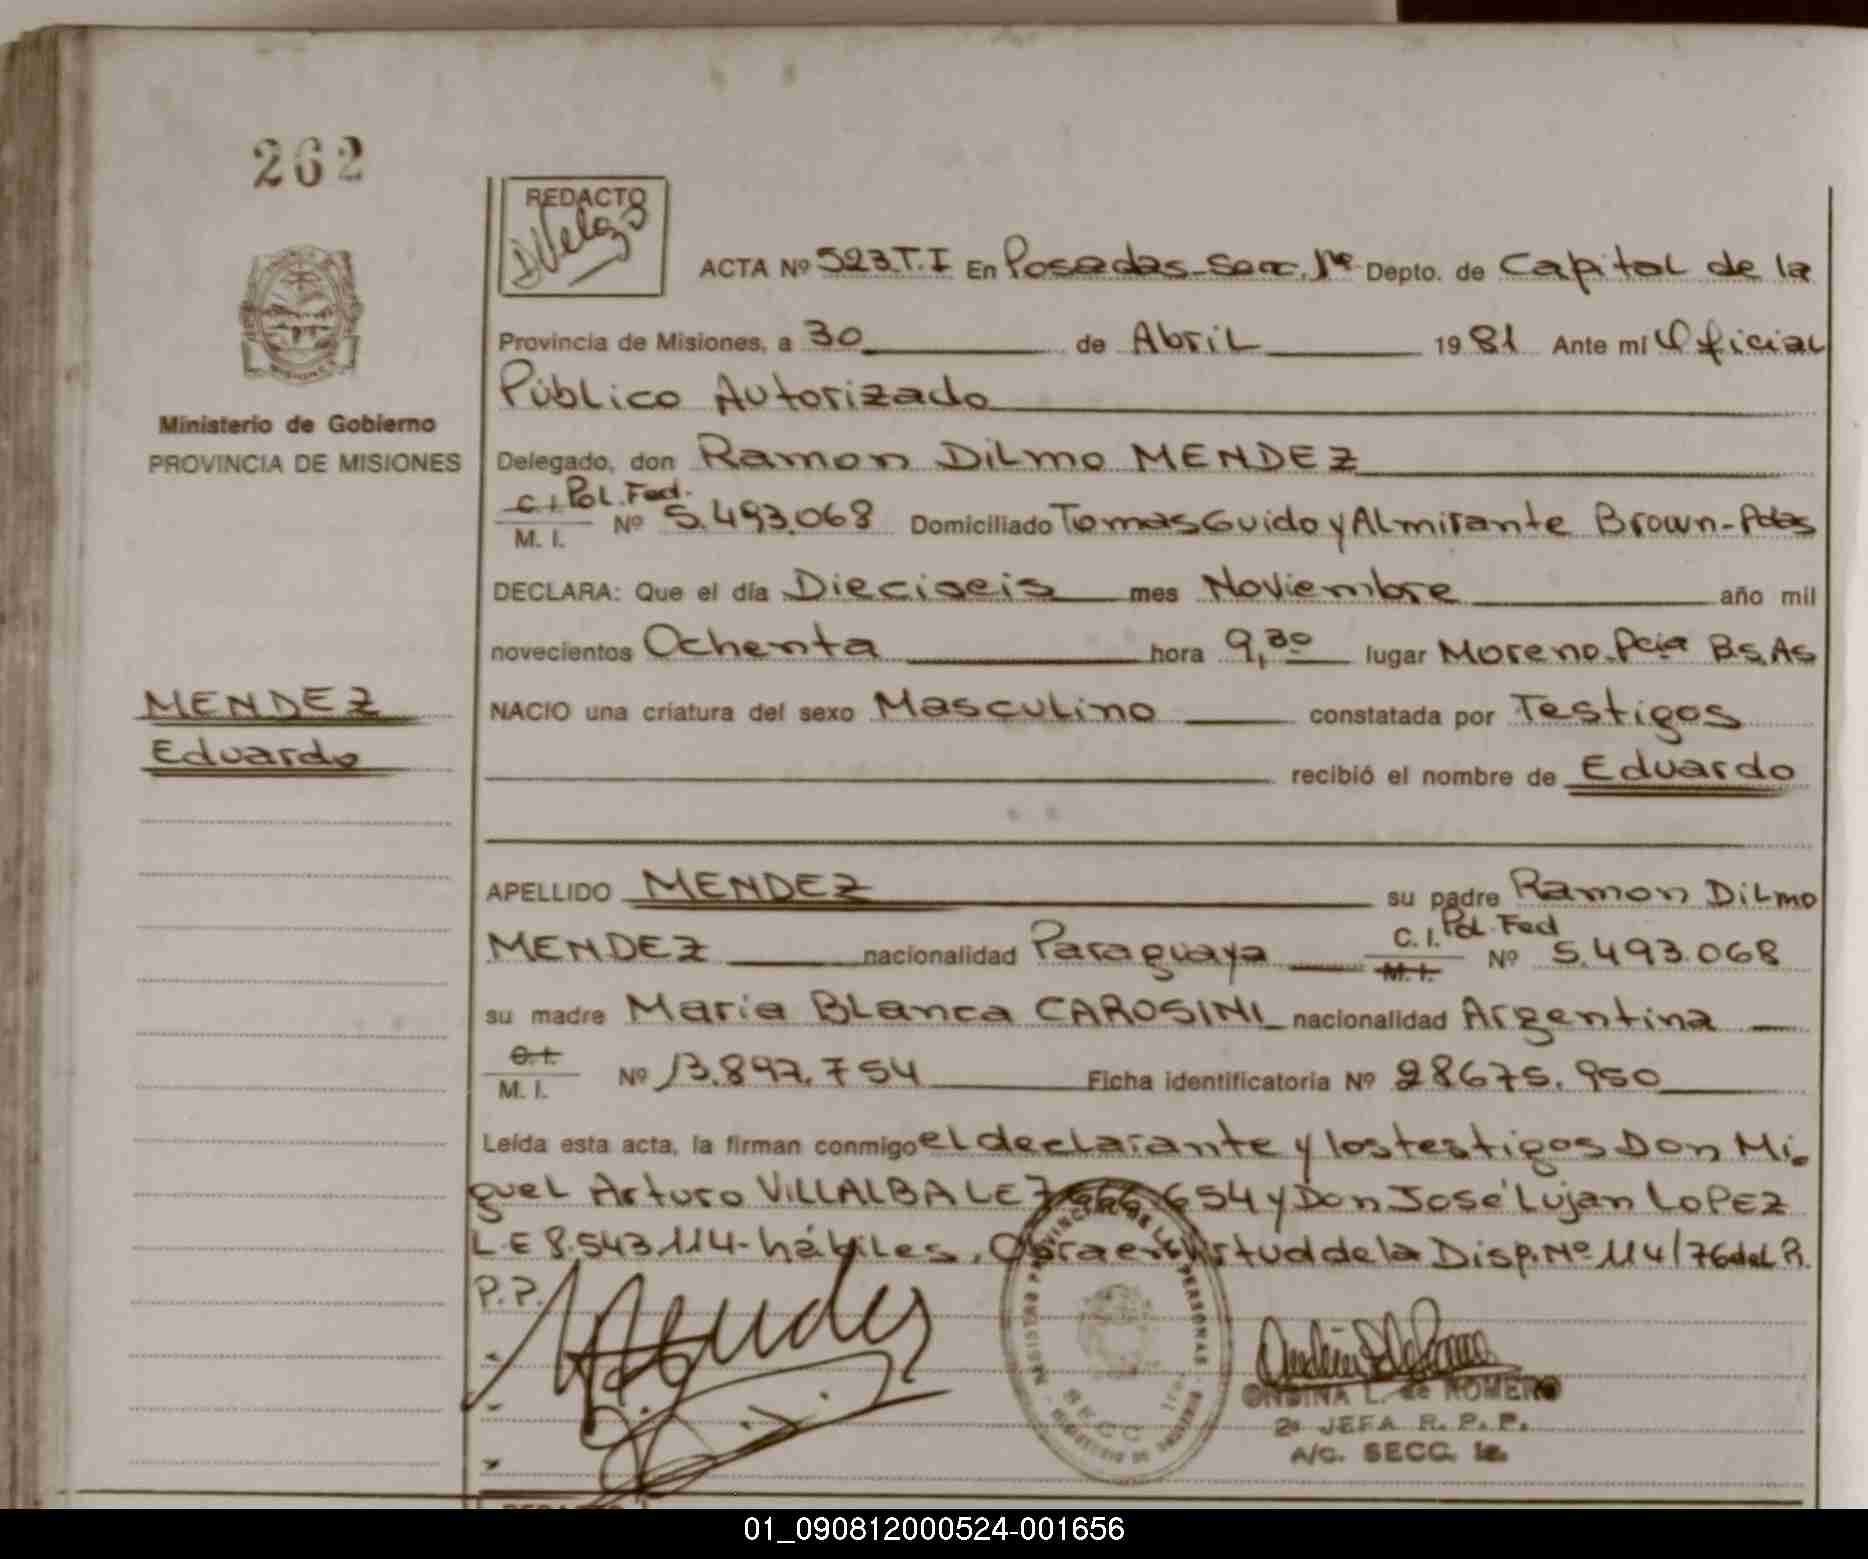 262
REDACTO
D Veloz
ACTA Nº 523.T.I En Posadas-Secc. 1ra Depto. de Capital de la
Provincia de Misiones, a 30 de Abril 1981 Ante mí Oficial
Público Autorizado
Ministerio de Gobierno
PROVINCIA DE MISIONES
Delegado, don Ramon Dilmo MENDEZ
C.I. Pol. Fed.
M. I. Nº 5.493.068 Domiciliado Tomas Guido y Almirante Brown-Pdas
DECLARA: Que el día Dieciseis mes Noviembre año mil
novecientos Ochenta hora 9,30 lugar Moreno-Pcia Bs.As
MENDEZ
Eduardo
NACIO una criatura del sexo Masculino constatada por Testigos
recibió el nombre de Eduardo
APELLIDO MENDEZ su padre Ramon Dilmo
MENDEZ nacionalidad Paraguaya C. I. Pol. Fed M. I. Nº 5.493.068
su madre Maria Blanca CAROSINI nacionalidad Argentina
C. I.
M. I. Nº 13.897.754 Ficha identificatoria Nº 28675.950
Leída esta acta, la firman conmigo el declarante y los testigos Don Mi-
guel Arturo VILLALBA LE 7.666.654 y Don José Lujan LOPEZ
L.E 8.543.114- hábiles. Obra en virtud de la Disp. Nº 114/76 del R.
P.P.
Mendez
REGISTRO PROVINCIAL DE LAS PERSONAS
SECC. 1ra
ONDINA L. de ROMERO
2ª JEFA R. P. P.
A/C. SECC. 1a.
REDACTO
01_090812000524-001656